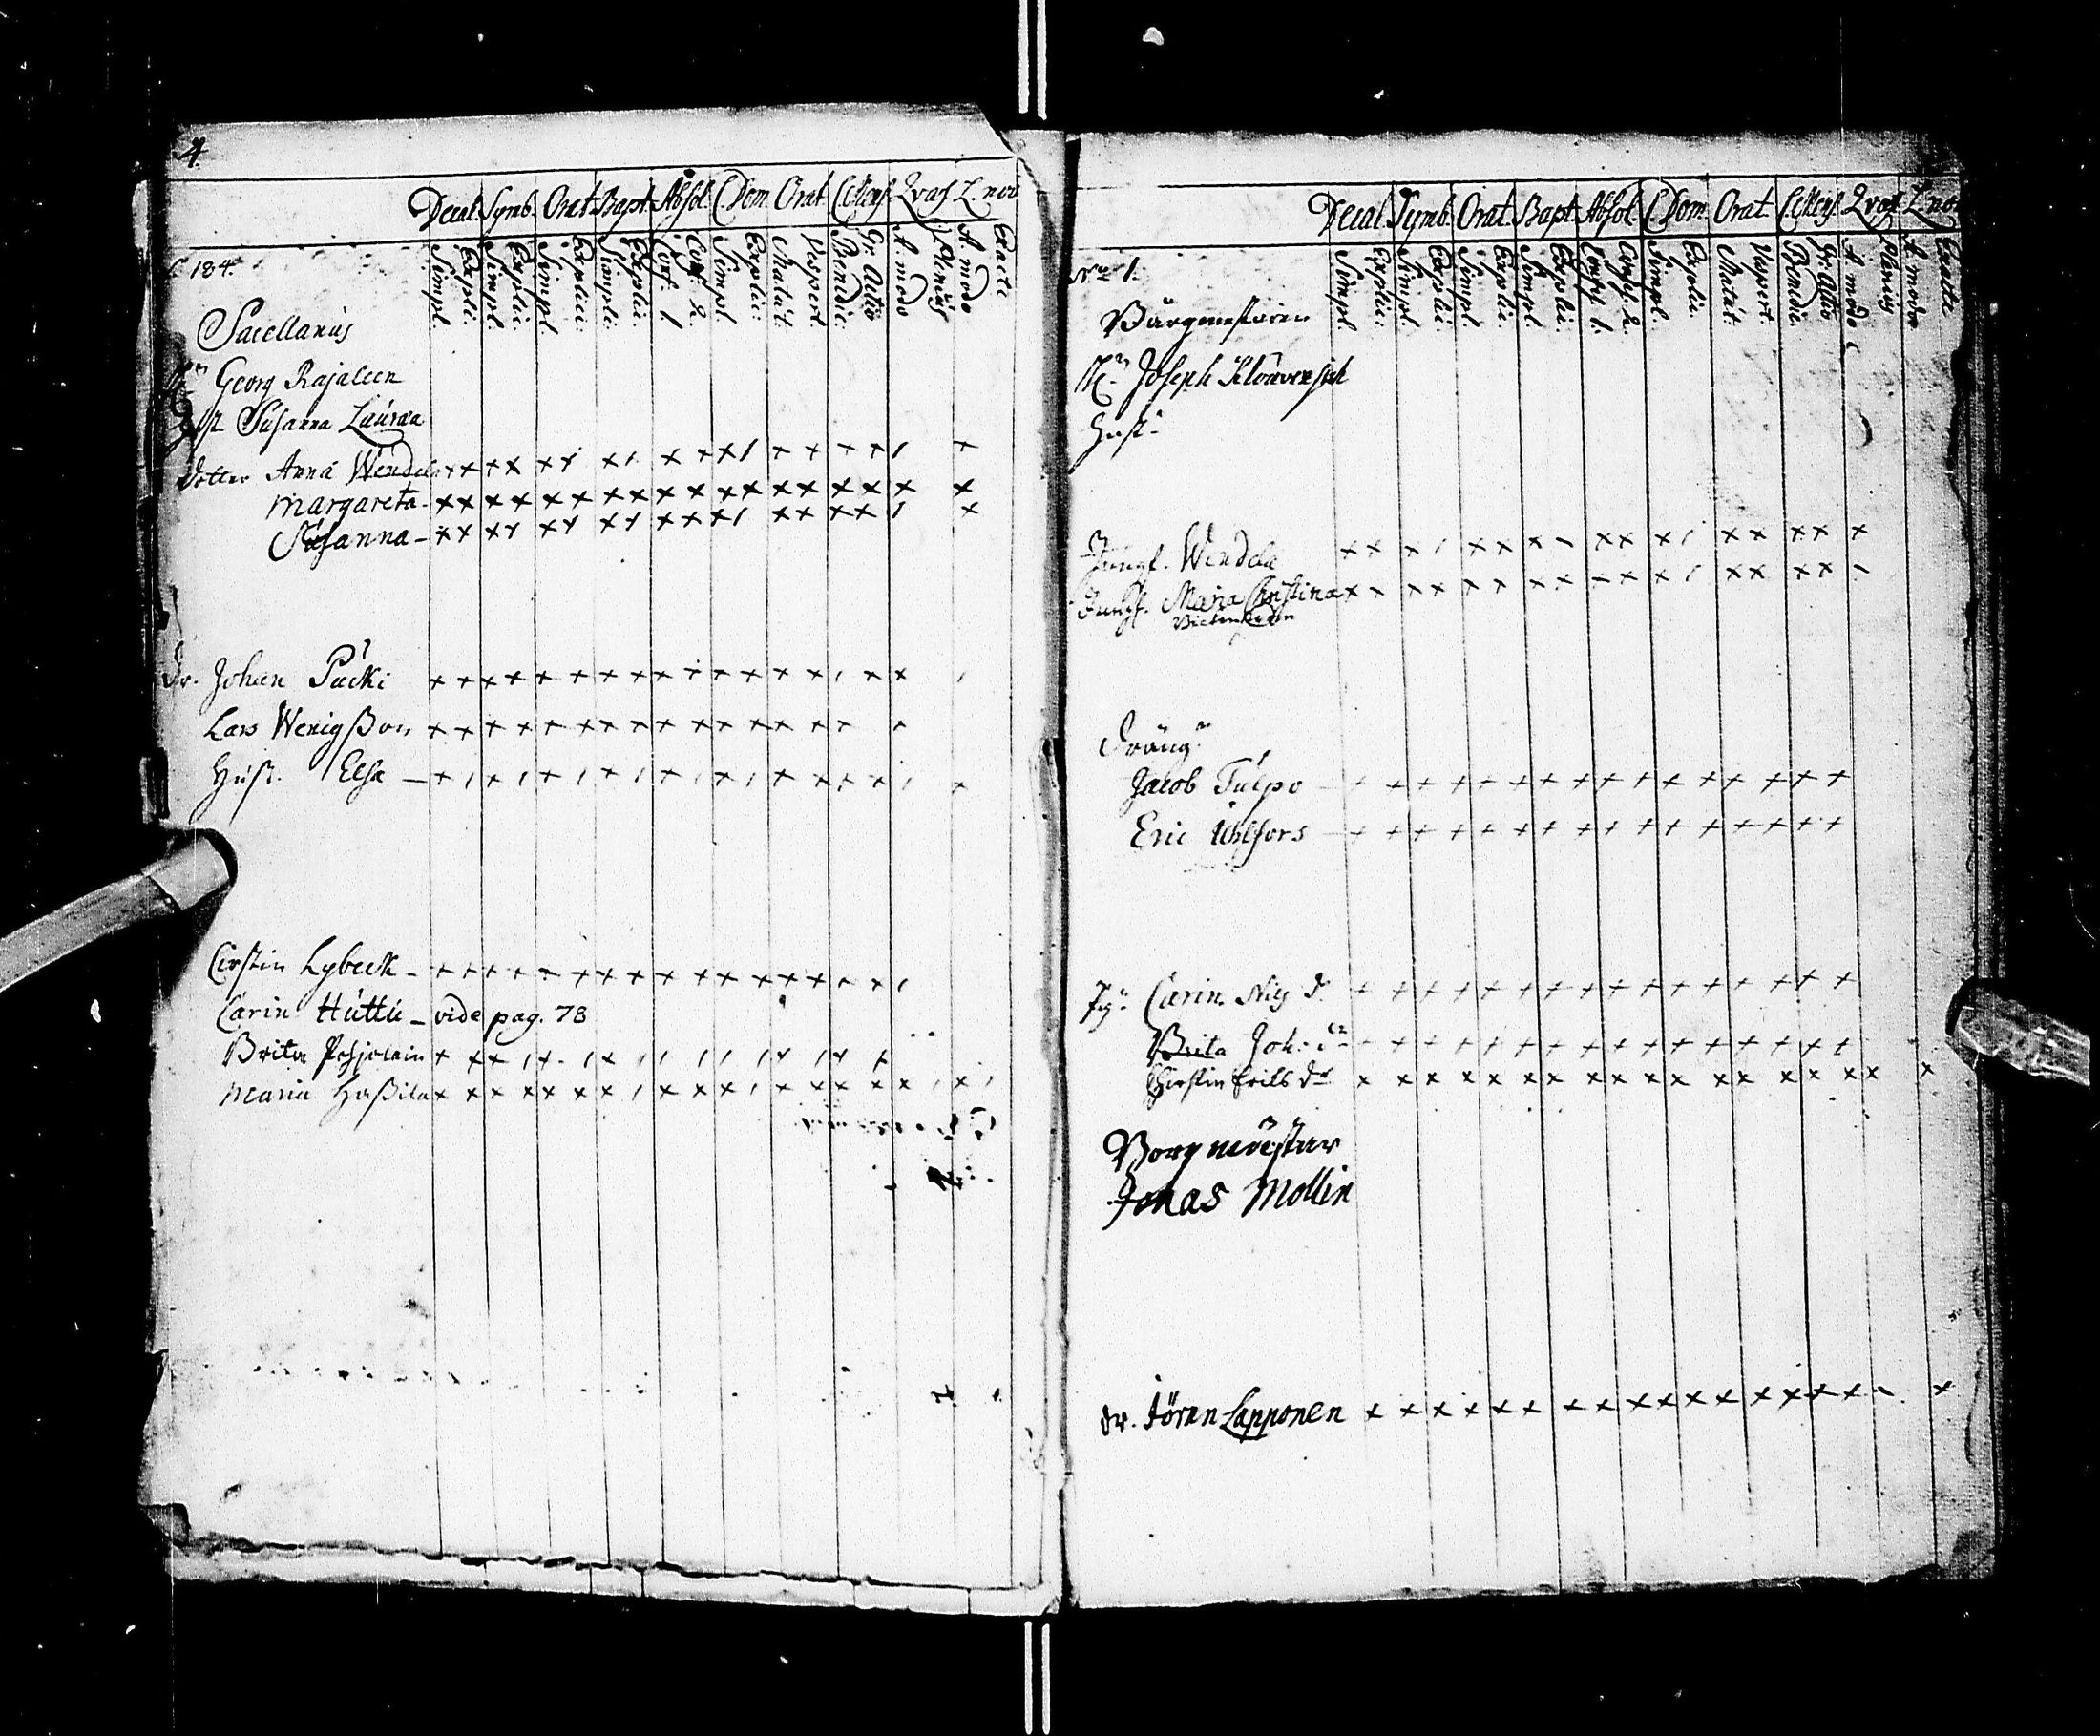 4.
Decal. Symb. Orat. Bapt. Absol. C.Dom. Orat. C.Mens. Qvas L.nov
Simpl. Explic: Simpl. Explic: Simpl. Explic: Simpl: Explic: Conf. 1 Conf. 2. Simpl. Explic: Matut. Vespert. Benedic: Gr. Actio A. modo Plenius A. modo Exacte
184.
Sacellanus
Georg Rajaleen
Hust Susanna Lauræa
dotter Anna Wendela
Margareta
Susanna
Dr. Johan Pucki
Lars Wenigßon
Hust. Elsa
Cirstin Lybeck
Carin Huttu vide pag. 78
Brita Pohjolain
Maria Haßila
Decal. Symb. Orat. Bapt. Absol. C.Dom. Orat C.Mens. Qvas L.nov
Simpl. Explic: Simpl. Explic: Simpl. Explic: Simpl. Explic: Conf. 1. Conf. 2. Simpl. Explic: Matut: Vespert: Benedic: Gr: Actio A. modo Plenius A. modo Exacte
No 1.
Bårgmestaren
Hr Joseph
Hust:
Jungf. Wendela
Jungf. Maria Christina
Dräng:
Jacob Tulpo
Eric Uhlfors
Pig: Carin Nils dr
Brita Joh: dr
Chirstin Erils dr
Borgmöistar
Jonas Mollin
dr. Jöran Lapponen